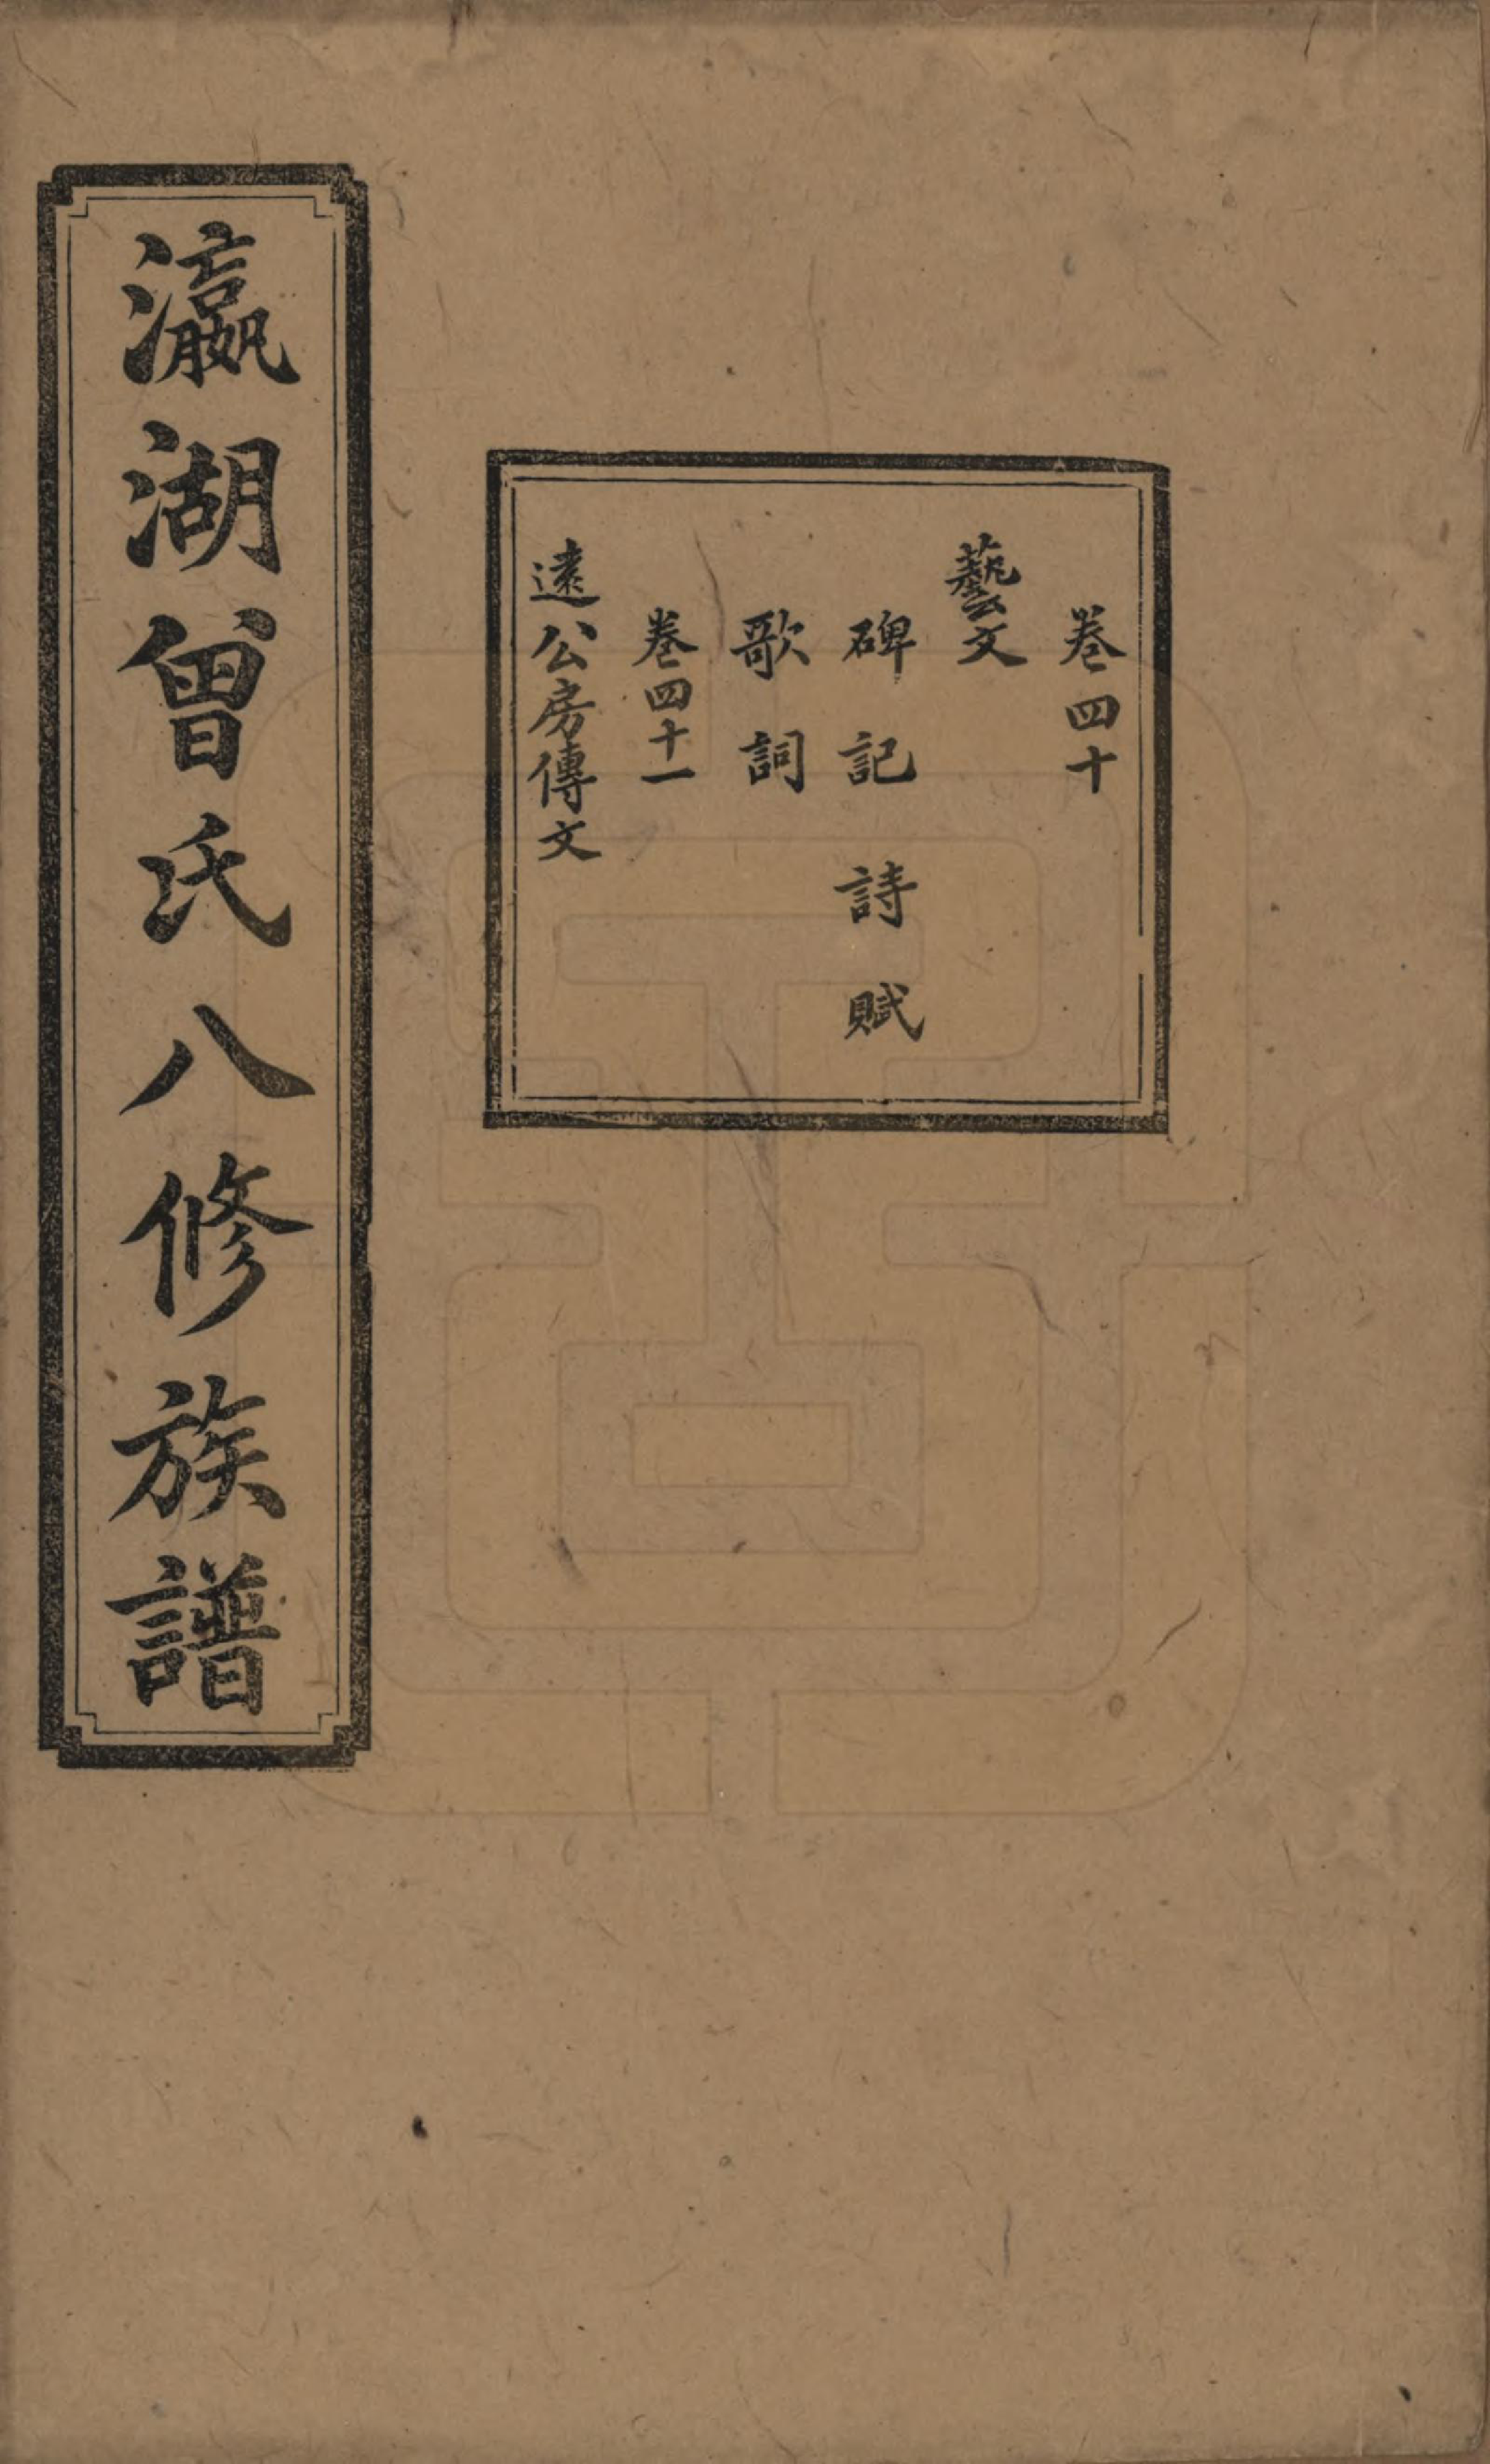 瀛湖曾氏八修族譜
卷四十
藝文
碑記詩賦
歌詞
卷四十一
遠公房傳文